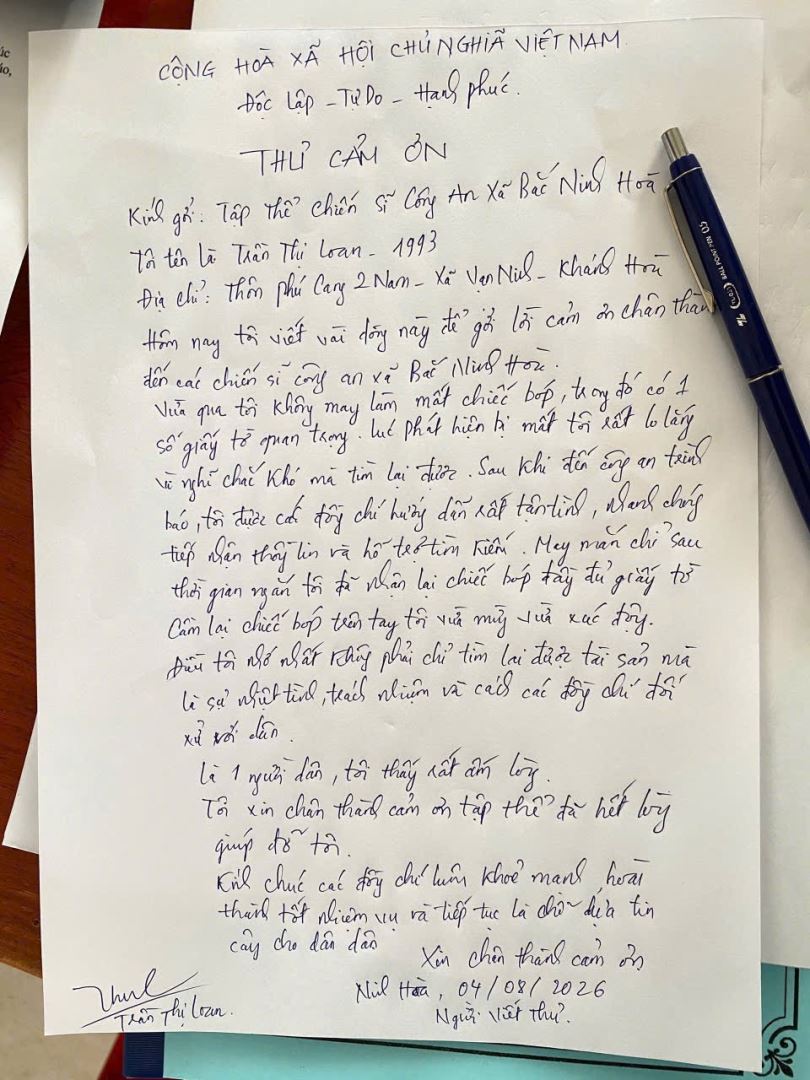 CỘNG HOÀ XÃ HỘI CHỦ NGHIÃ VIỆT NAM
Độc Lập - Tự Do - Hạnh phúc.
THƯ CẢM ƠN
Kính gởi: Tập thể chiến sĩ Công An Xã Bắc Ninh Hoà
Tôi tên là Trần Thị Loan - 1993
Địa chỉ: Thôn phú Cang 2 Nam - Xã Vạn Ninh - Khánh Hoà
Hôm nay tôi viết vài dòng này để gởi lời cảm ơn chân thàn
đến các chiến sĩ công an xã Bắc Ninh Hoà.
Vừa qua tôi không may làm mất chiếc bóp, trong đó có 1
số giấy tờ quan trọng. lúc phát hiện bị mất tôi rất lo lắng
và nghĩ chắc khó mà tìm lại được. Sau khi đến công an trình
báo, tôi được các đồng chí hướng dẫn rất tận tình, nhanh chóng
tiếp nhận thông tin và hổ trợ tìm kiếm. May mắn chỉ sau
thời gian ngắn tôi đã nhận lại chiếc bóp đầy đủ giấy tờ
Cầm lại chiếc bóp trên tay tôi vừa mừng vừa xúc động.
Điều tôi nhớ nhất không phải chỉ tìm lại được tài sản mà
là sự nhiệt tình, trách nhiệm và cách các đồng chí đối
xử với dân.
là 1 người dân, tôi thấy rất ấm lòng.
Tôi xin chân thành cảm ơn tập thể đã hết lòng
giúp đỡ tôi.
Kính chúc các đồng chí luôn khoẻ mạnh, hoàn
thành tốt nhiệm vụ và tiếp tục là chỗ dựa tin
cậy cho dân dân
Xin chân thành cảm ơn
Ninh Hoà, 04/08/2026
Người viết thư.
Trần Thị Loan.
BALL POINT PEN 0.5